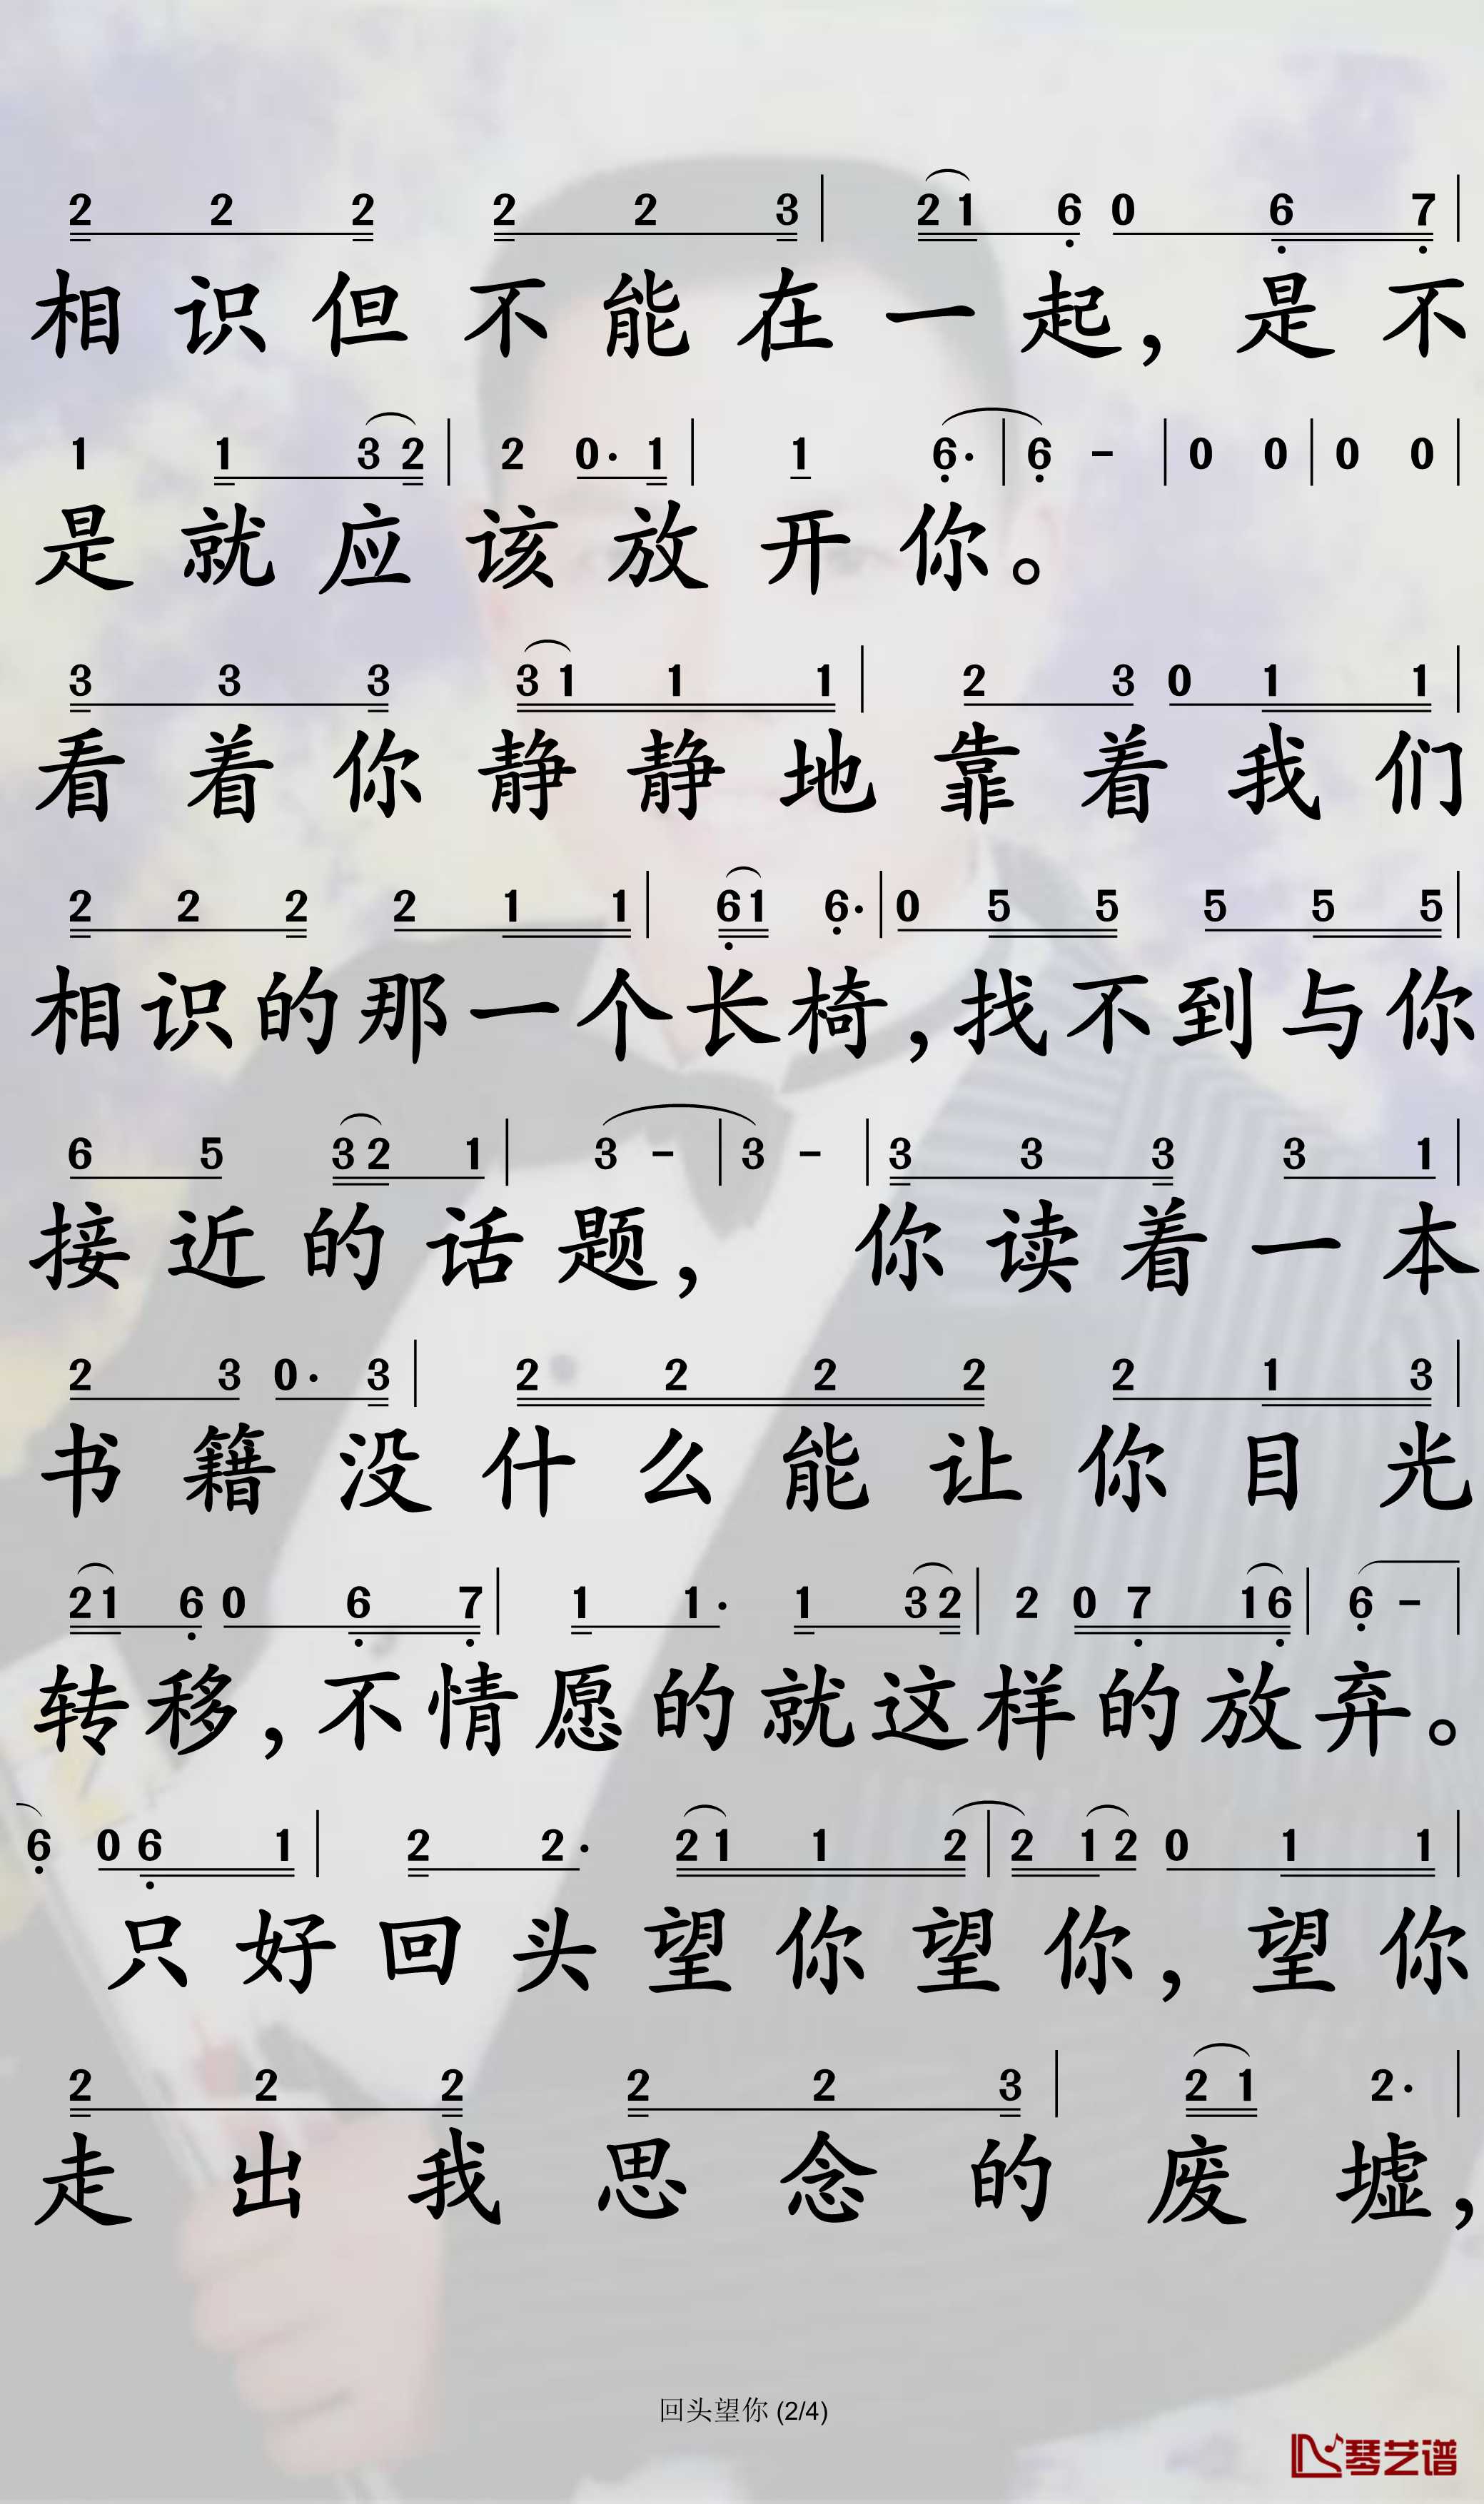 2 2 2 2 2 3 | 2 1 6 0 6 7 |
相识但不能在一起，是不
1 1 3 2 | 2 0· 1 | 1 6· | 6 - | 0 0 | 0 0 |
是就应该放开你。
3 3 3 3 1 1 1 | 2 3 0 1 1 |
看着你静静地靠着我们
2 2 2 2 1 1 | 6 1 6· | 0 5 5 5 5 5 |
相识的那一个长椅，找不到与你
6 5 3 2 1 | 3 - | 3 - | 3 3 3 3 1 |
接近的话题，你读着一本
2 3 0· 3 | 2 2 2 2 2 1 3 |
书籍没什么能让你目光
2 1 6 0 6 7 | 1 1· 1 3 2 | 2 0 7 1 6 | 6 - |
转移，不情愿的就这样的放弃。
6 0 6 1 | 2 2· 2 1 1 2 | 2 1 2 0 1 1 |
只好回头望你望你，望你
2 2 2 2 2 3 | 2 1 2· |
走出我思念的废墟，
回头望你 (2/4)
琴艺谱